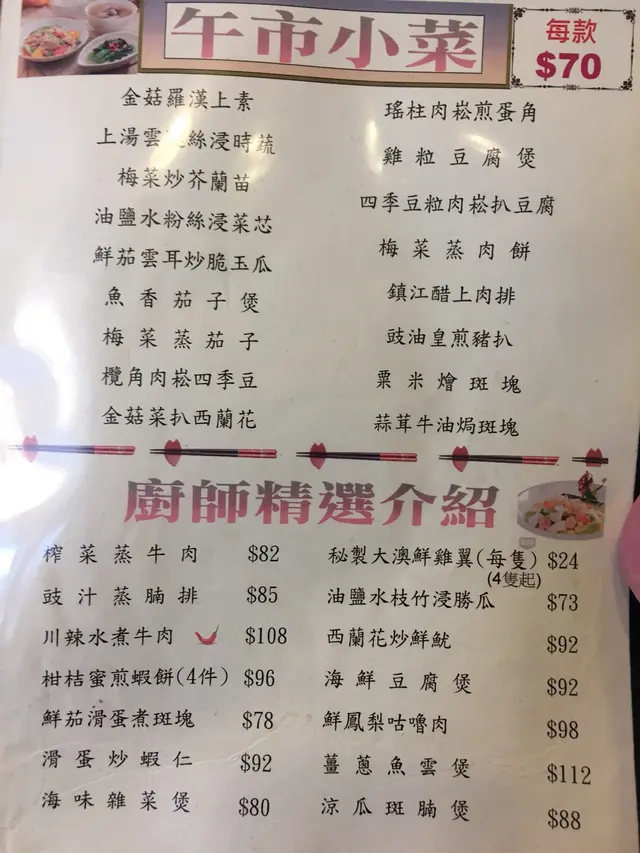 午市小菜
每款
$70
金菇羅漢上素
上湯雲絲浸時蔬
梅菜炒芥蘭苗
油鹽水粉絲浸菜芯
鮮茄雲耳炒脆玉瓜
魚香茄子煲
梅菜蒸茄子
欖角肉崧四季豆
金菇菜扒西蘭花
瑤柱肉崧煎蛋角
雞粒豆腐煲
四季豆粒肉崧扒豆腐
梅菜蒸肉餅
鎮江醋上肉排
豉油皇煎豬扒
粟米燴斑塊
蒜茸牛油焗斑塊
廚師精選介紹
榨菜蒸牛肉 $82
豉汁蒸腩排 $85
川辣水煮牛肉 $108
柑桔蜜煎蝦餅(4件) $96
鮮茄滑蛋煮斑塊 $78
滑蛋炒蝦仁 $92
海味雜菜煲 $80
秘製大澳鮮雞翼(每隻) $24
(4隻起)
油鹽水枝竹浸勝瓜 $73
西蘭花炒鮮魷 $92
海鮮豆腐煲 $92
鮮鳳梨咕嚕肉 $98
薑蔥魚雲煲 $112
涼瓜斑腩煲 $88